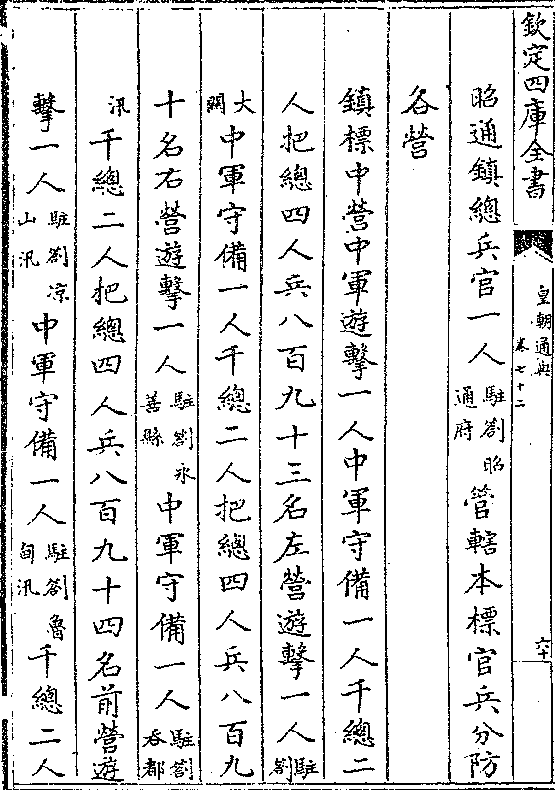 欽定四庫全書
皇朝通典
卷七十二
六十
昭通鎮總兵官一人駐劄昭通府管轄本標官兵分防
各營
鎮標中營中軍遊擊一人中軍守備一人千總二
人把總四人兵八百九十三名左營遊擊一人駐劄
大關中軍守備一人千總二人把總四人兵八百九
十名右營遊擊一人駐劄永善縣中軍守備一人駐劄吞都
汛千總二人把總四人兵八百九十四名前營遊
擊一人駐劄凉山汛中軍守備一人駐劄魯甸汛千總二人